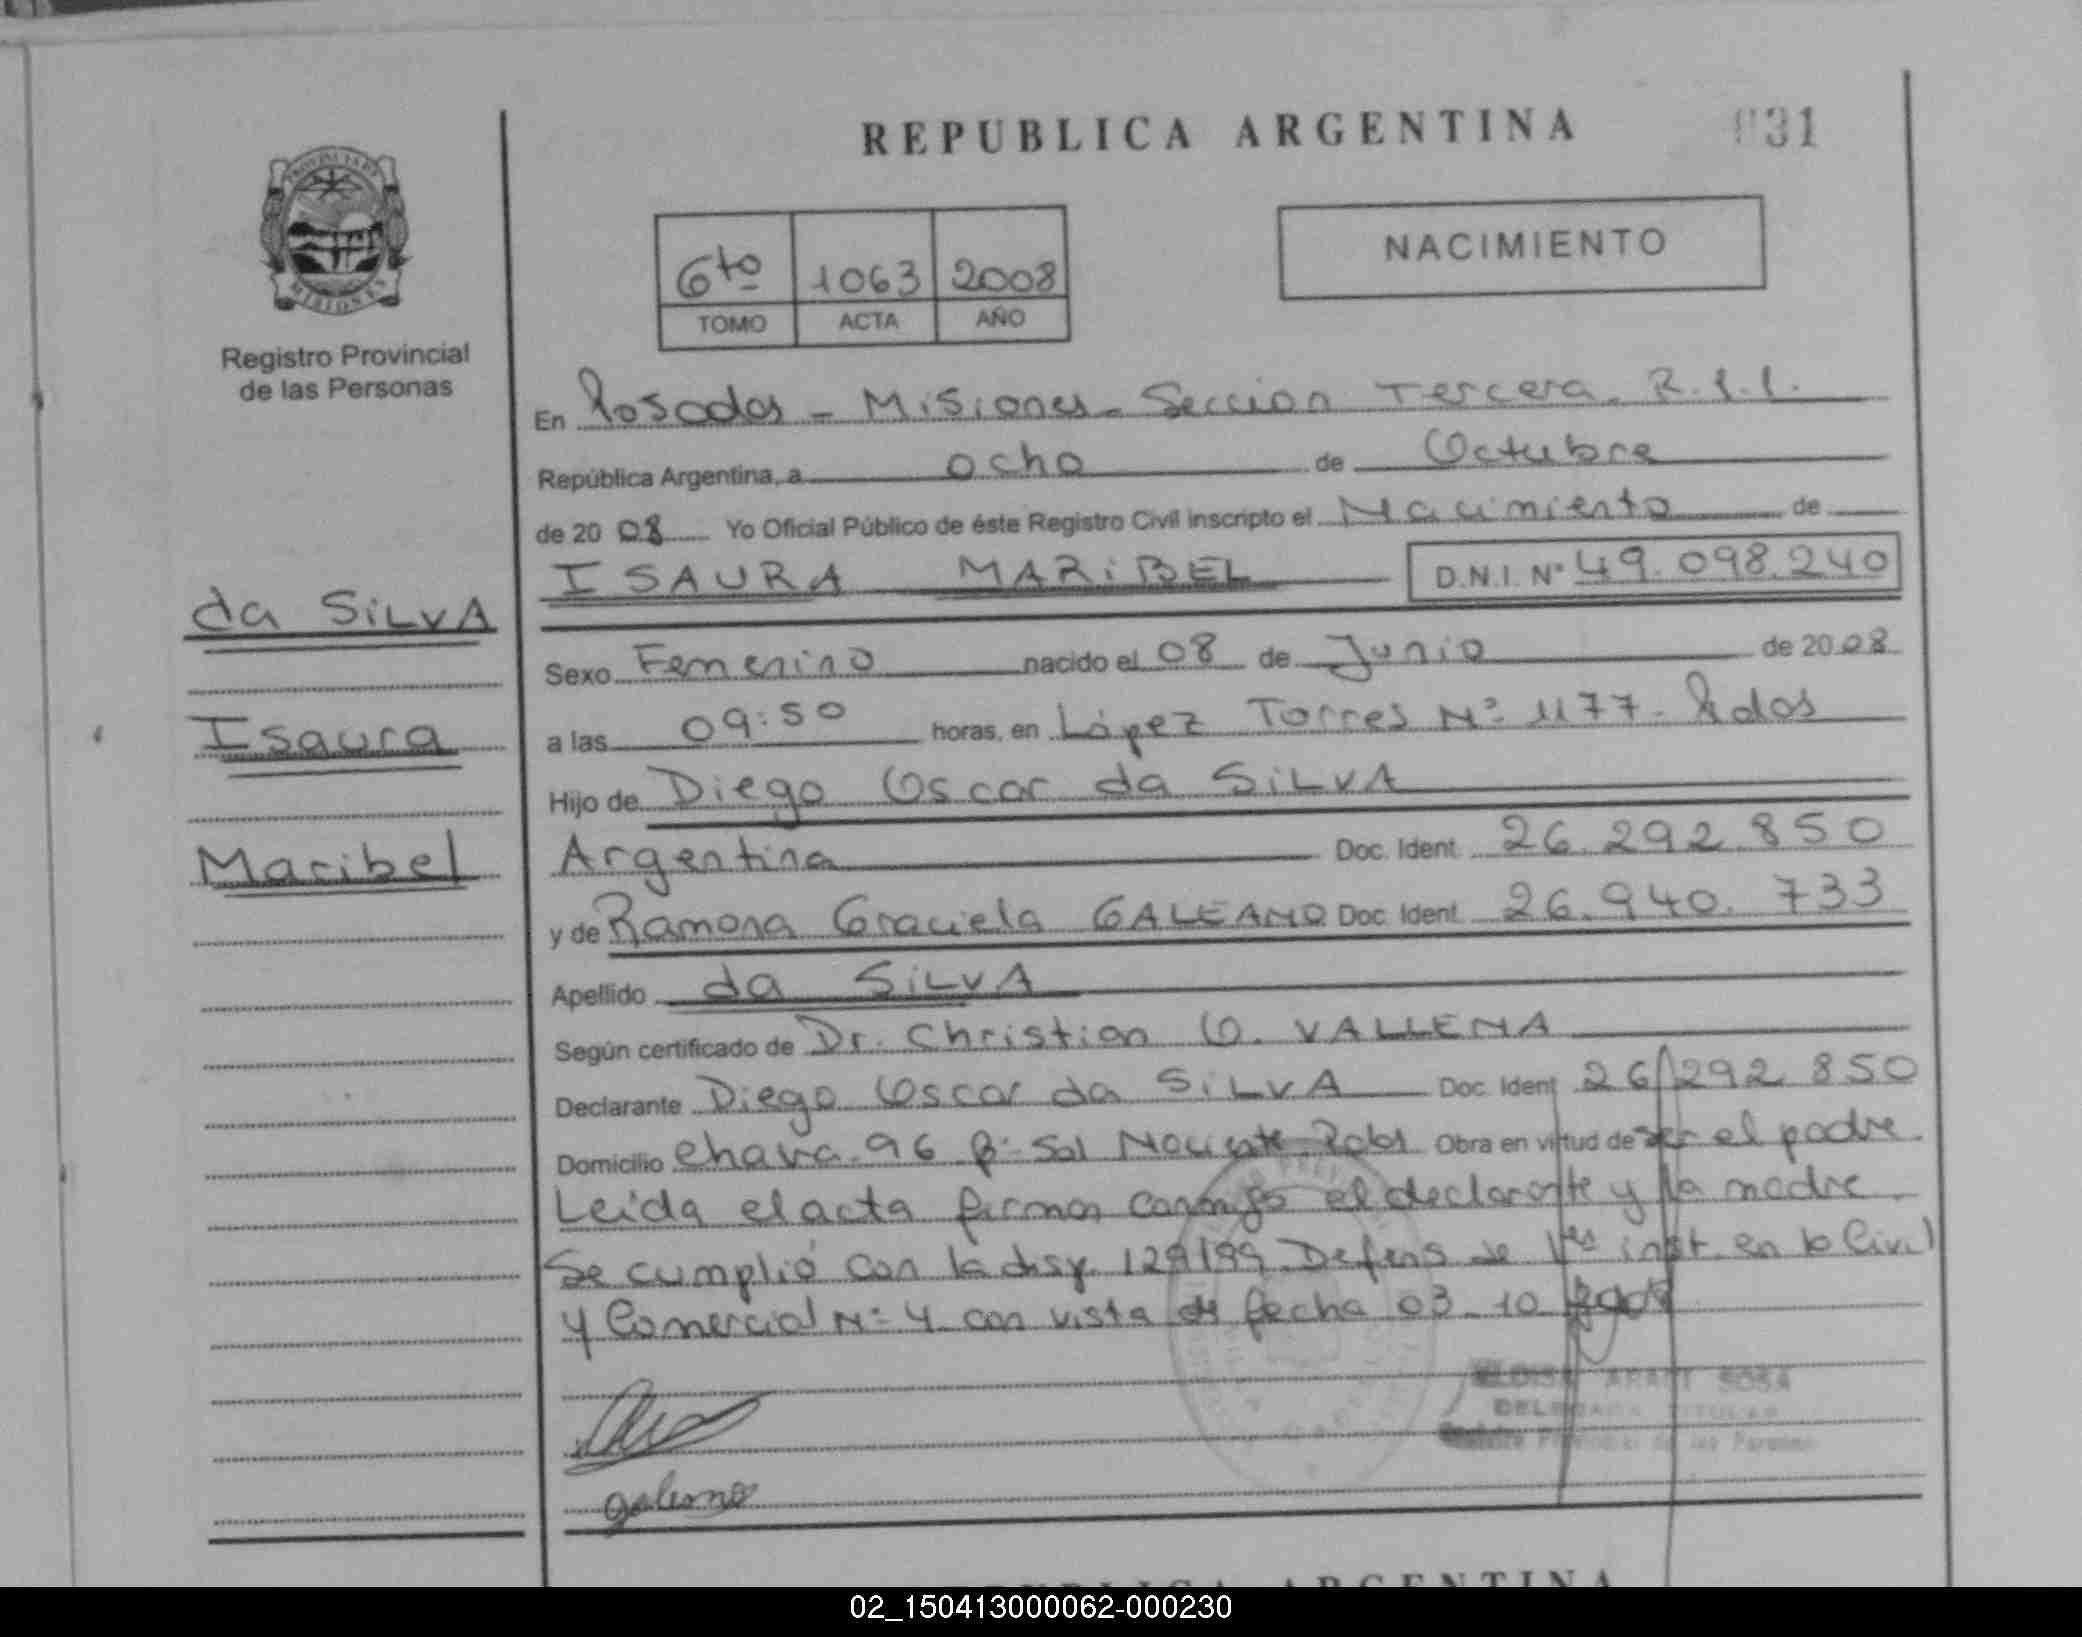 REPUBLICA ARGENTINA
031
PROVINCIA DE
MISIONES
Registro Provincial
de las Personas
6to 1063 2008
TOMO ACTA AÑO
NACIMIENTO
En Posadas - Misiones - Sección Tercera.
República Argentina, a ocho de Octubre
de 2008 Yo Oficial Público de éste Registro Civil inscripto el Nacimiento de
ISAURA MARiBEL D.N.I. N° 49.098.240
da SiLVA
Isaura
Maribel
Sexo Femenino nacido el 08 de Junio de 2008
a las 09:50 horas, en López Torres N° 1177 - Pdas
Hijo de Diego Oscar da SiLVA
Argentina Doc. Ident. 26.292.850
y de Ramona Graciela GALEANO Doc. Ident. 26.940.733
Apellido da SiLVA
Según certificado de Dr. Christian O. VALLENA
Declarante Diego Oscar da SiLVA Doc. Ident. 26.292.850
Domicilio Chava. 96 B° Sol Naciente Pdas Obra en virtud de ser el padre.
Leida el acta firman conmigo el declarante y la madre.
Se cumplió con la disp. 129/99 Defens de 1ra inst. en lo Civil
y Comercial N° 4 con vista de fecha 03 10 2008
SOSA
DELEGADA TITULAR
Registro Provincial de las Personas
galeano
REPUBLICA ARGENTINA
02_150413000062-000230